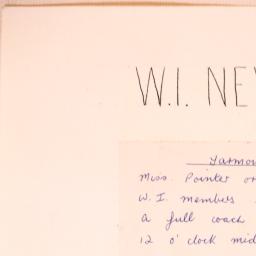 W.I. NE
Yarmou
Miss Pointer or
W.I. members
a full coach
12 o'clock mid